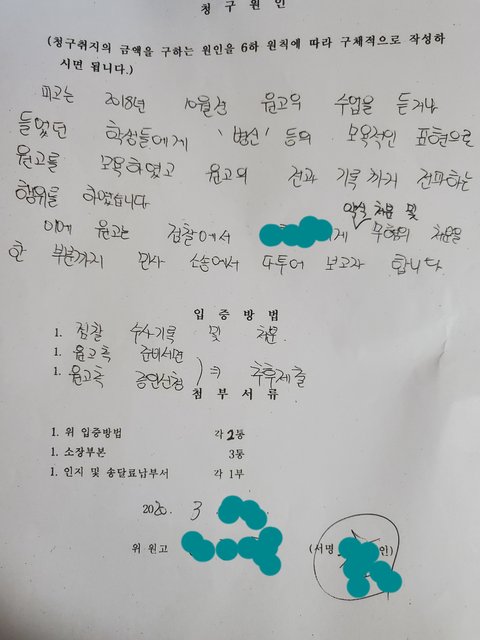 청 구 원 인
(청구취지의 금액을 구하는 원인을 6하 원칙에 따라 구체적으로 작성하
시면 됩니다.)
피고는 2018년 10월경 원고의 수업을 듣거나
들었던 학생들에게 '병신' 등의 모욕적인 표현으로
원고를 모욕하였고 원고의 전과 기록까지 전파하는
행위를 하였습니다
약식 처분 및
이에 원고는 검찰에서 에게 무혐의 처분을
한 부분까지 민사 소송에서 다투어 보고자 합니다.
입 증 방 법
1. 검찰 수사기록 및 처분
1. 원고측 준비서면
1. 원고측 증인신청 추후제출
첨 부 서 류
1. 위 입증방법 각 2통
1. 소장부본 3통
1. 인지 및 송달료납부서 각 1부
2020. 3
위 원고 (서명 인)